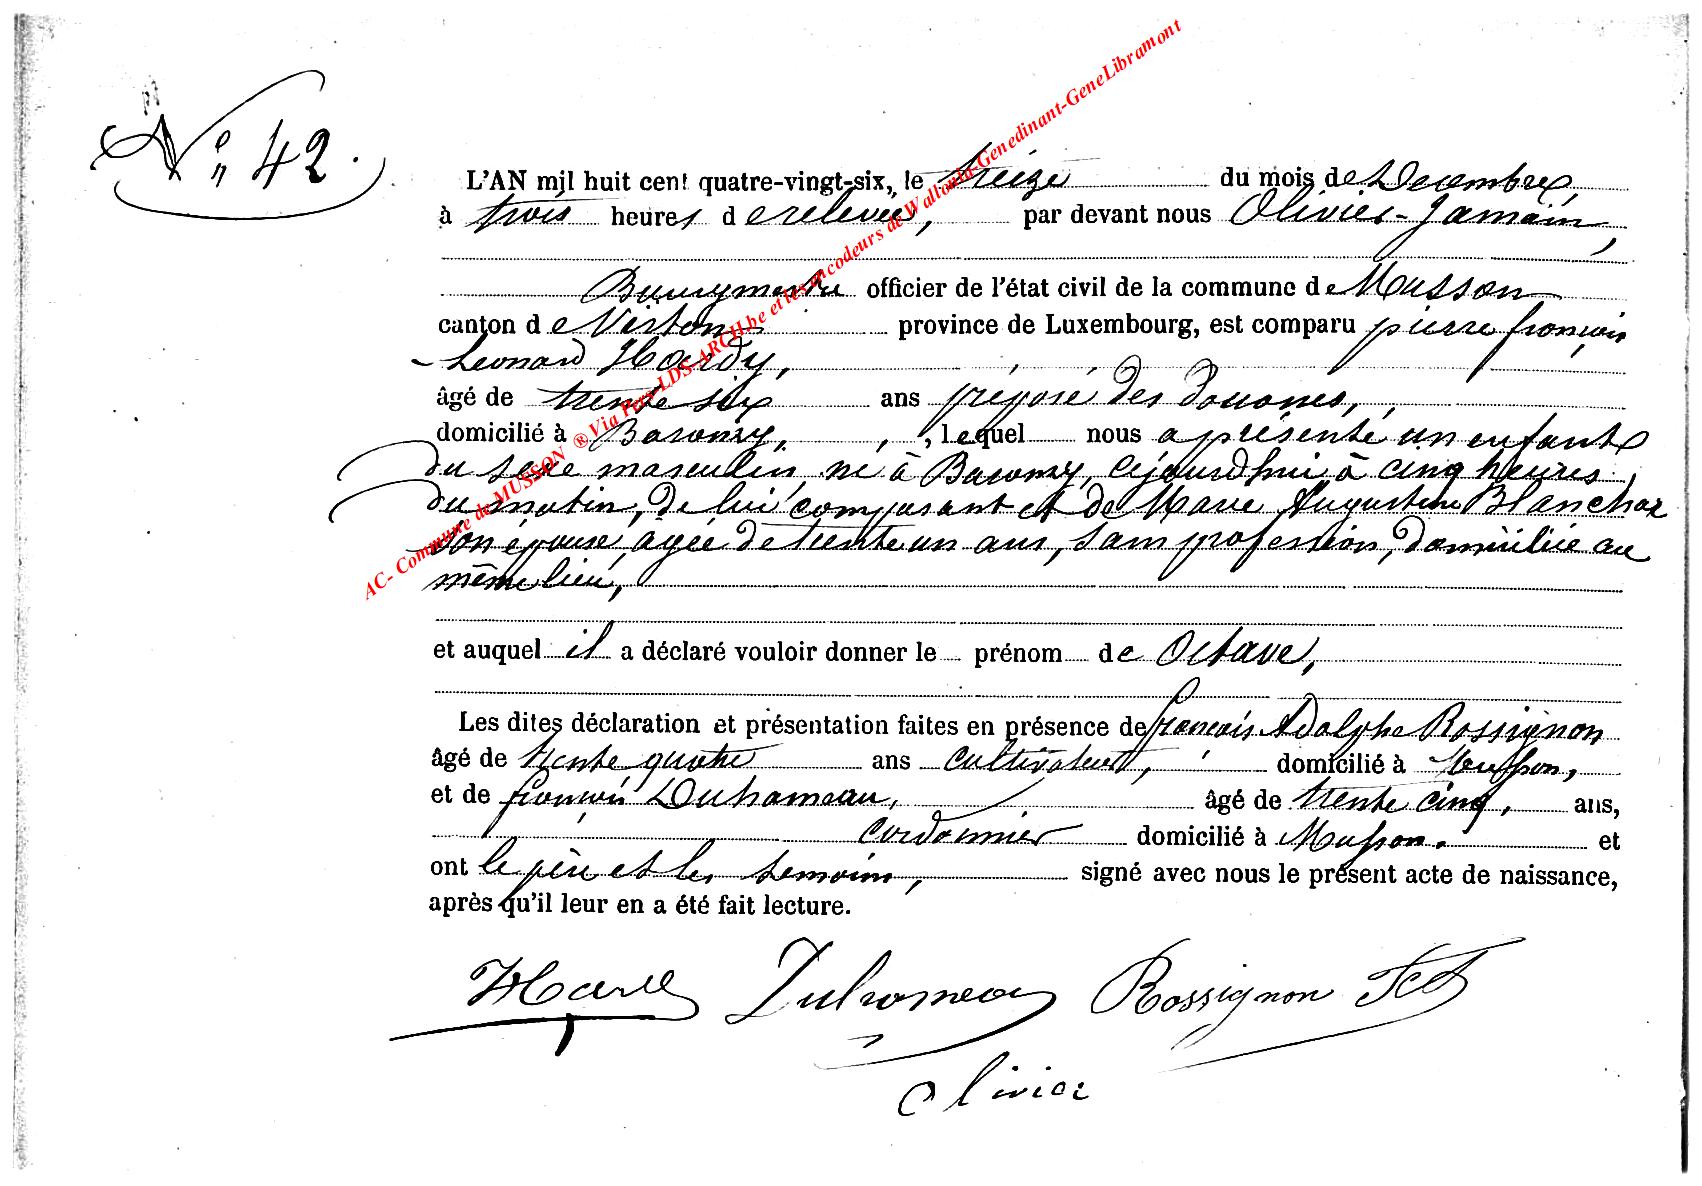 N° 42.
L'AN mil huit cent quatre-vingt-six, le treize du mois de Decembre,
à trois heures de relevée, par devant nous Olivier-Jamain,
Bourgmestre officier de l'état civil de la commune de Musson,
canton de Virton province de Luxembourg, est comparu pierre françois
Leonard Hardy,
âgé de trente six ans préposé des douanes,
domicilié à Baranzy, lequel nous a présenté un enfant
du sexe masculin, né à Baranzy, cejourd'hui à cinq heures
du matin, de lui comparant et de Marie Augustine Blanchar
son épouse, agée de trente un ans, sans profession, domiciliée au
même lieu,
et auquel il a déclaré vouloir donner le prénom de Octave,
Les dites déclaration et présentation faites en présence de françois Adolphe Rossignon
âgé de trente quatre ans cultivateur, domicilié à Musson,
et de françois Duhameau, âgé de trente cinq, ans,
cordonnier domicilié à Musson. et
ont le père et les temoins, signé avec nous le présent acte de naissance,
après qu'il leur en a été fait lecture.
Duhameau Rossignon
Olivier
AC- Commune de MUSSON ® Via Pers-LDS-ARCH.be et les encodeurs de Wallonia-Genedinant-GeneLibramont